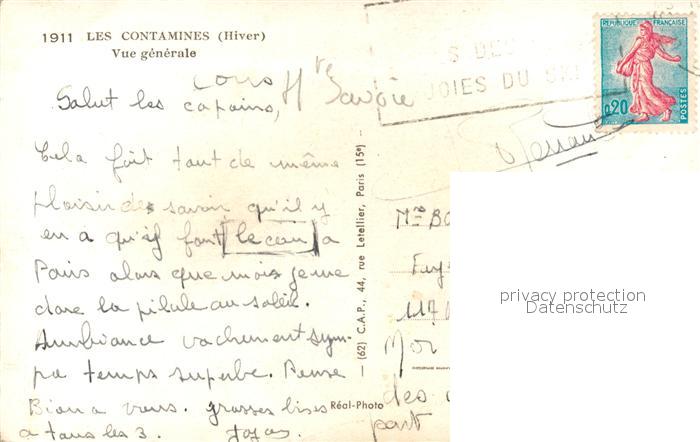 1911 LES CONTAMINES (Hiver)
Vue générale
Hte Savoie
Salut les copains,
Cela fait tout de même
plaisir de savoir qu'il y
en a qu'il font le con a
Paris alors que mois je me
dore la pilule au soleil.
Ambiance vachement sym-
pa temps superbe. Pense
Bien a vous. grosses bises
a tous les 3.
(62) C.A.P., 44, rue Letellier, Paris (15e)
Réal-Photo
JOIES DU SKI
REPUBLIQUE FRANÇAISE
0,20
POSTES
117
Mor
des
part
privacy protection
Datenschutz